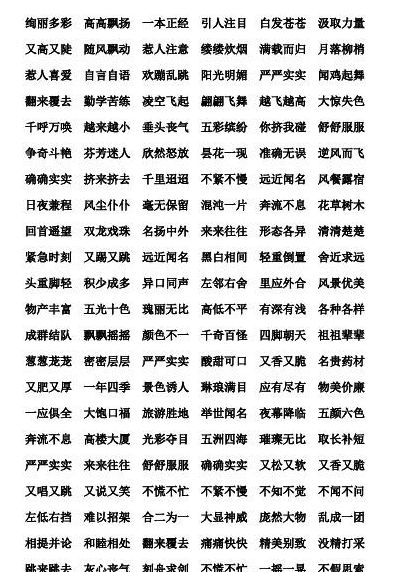 绚丽多彩 高高飘扬 一本正经 引人注目 白发苍苍 汲取力量
又高又陡 随风飘动 惹人注意 缕缕炊烟 满载而归 月落柳梢
惹人喜爱 自言自语 欢蹦乱跳 阳光明媚 严严实实 闻鸡起舞
翻来覆去 勤学苦练 凌空飞起 翩翩飞舞 越飞越高 大惊失色
千呼万唤 越来越小 垂头丧气 五彩缤纷 你挤我碰 舒舒服服
争奇斗艳 芬芳迷人 欣然怒放 昙花一现 准确无误 逆风而飞
确确实实 挤来挤去 千里迢迢 不紧不慢 远近闻名 风餐露宿
日夜兼程 风尘仆仆 毫无保留 混沌一片 奔流不息 花草树木
回首遥望 双龙戏珠 名扬中外 来来往往 形态各异 清清楚楚
紧急时刻 又踢又跳 远近闻名 黑白相间 轻重倒置 舍近求远
头重脚轻 积少成多 异口同声 左邻右舍 里应外合 风景优美
物产丰富 五光十色 瑰丽无比 高低不平 有深有浅 各种各样
成群结队 飘飘摇摇 颜色不一 千奇百怪 四脚朝天 祖祖辈辈
葱葱茏茏 密密层层 严严实实 酸甜可口 又香又脆 名贵药材
又肥又厚 一年四季 景色诱人 琳琅满目 应有尽有 物美价廉
一应俱全 大饱口福 旅游胜地 举世闻名 夜幕降临 五颜六色
奔流不息 高楼大厦 光彩夺目 五洲四海 璀璨无比 取长补短
严严实实 来来往往 舒舒服服 确确实实 又松又软 又香又脆
又唱又跳 又说又笑 不慌不忙 不紧不慢 不知不觉 不闻不问
左低右挡 难以招架 合二为一 大显神威 庞然大物 乱成一团
相提并论 和睦相处 翻来覆去 痛痛快快 精美别致 没精打采
跳来跳去 灰心丧气 刻舟求剑 不慌不忙 一摇一晃 不假思索